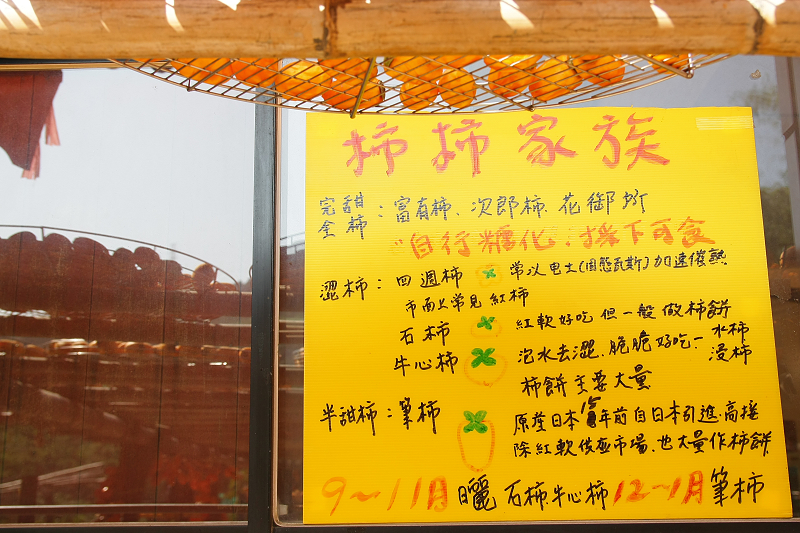 柿柿家族
完全甜柿：富有柿、次郎柿、花御所
"自行糖化：採下可食
澀柿：四週柿 常以电土(固態瓦斯)加速催熟
市面上常見紅柿
石柿 紅軟好吃 但一般做柿餅
牛心柿 泡水去澀、脆脆好吃－水柿 浸柿
柿餅主要大量
半甜柿：筆柿 原產日本 年前自日本引進、高接
除紅軟後在市場、也大量作柿餅
9～11月曬石柿、牛心柿 12～1月筆柿